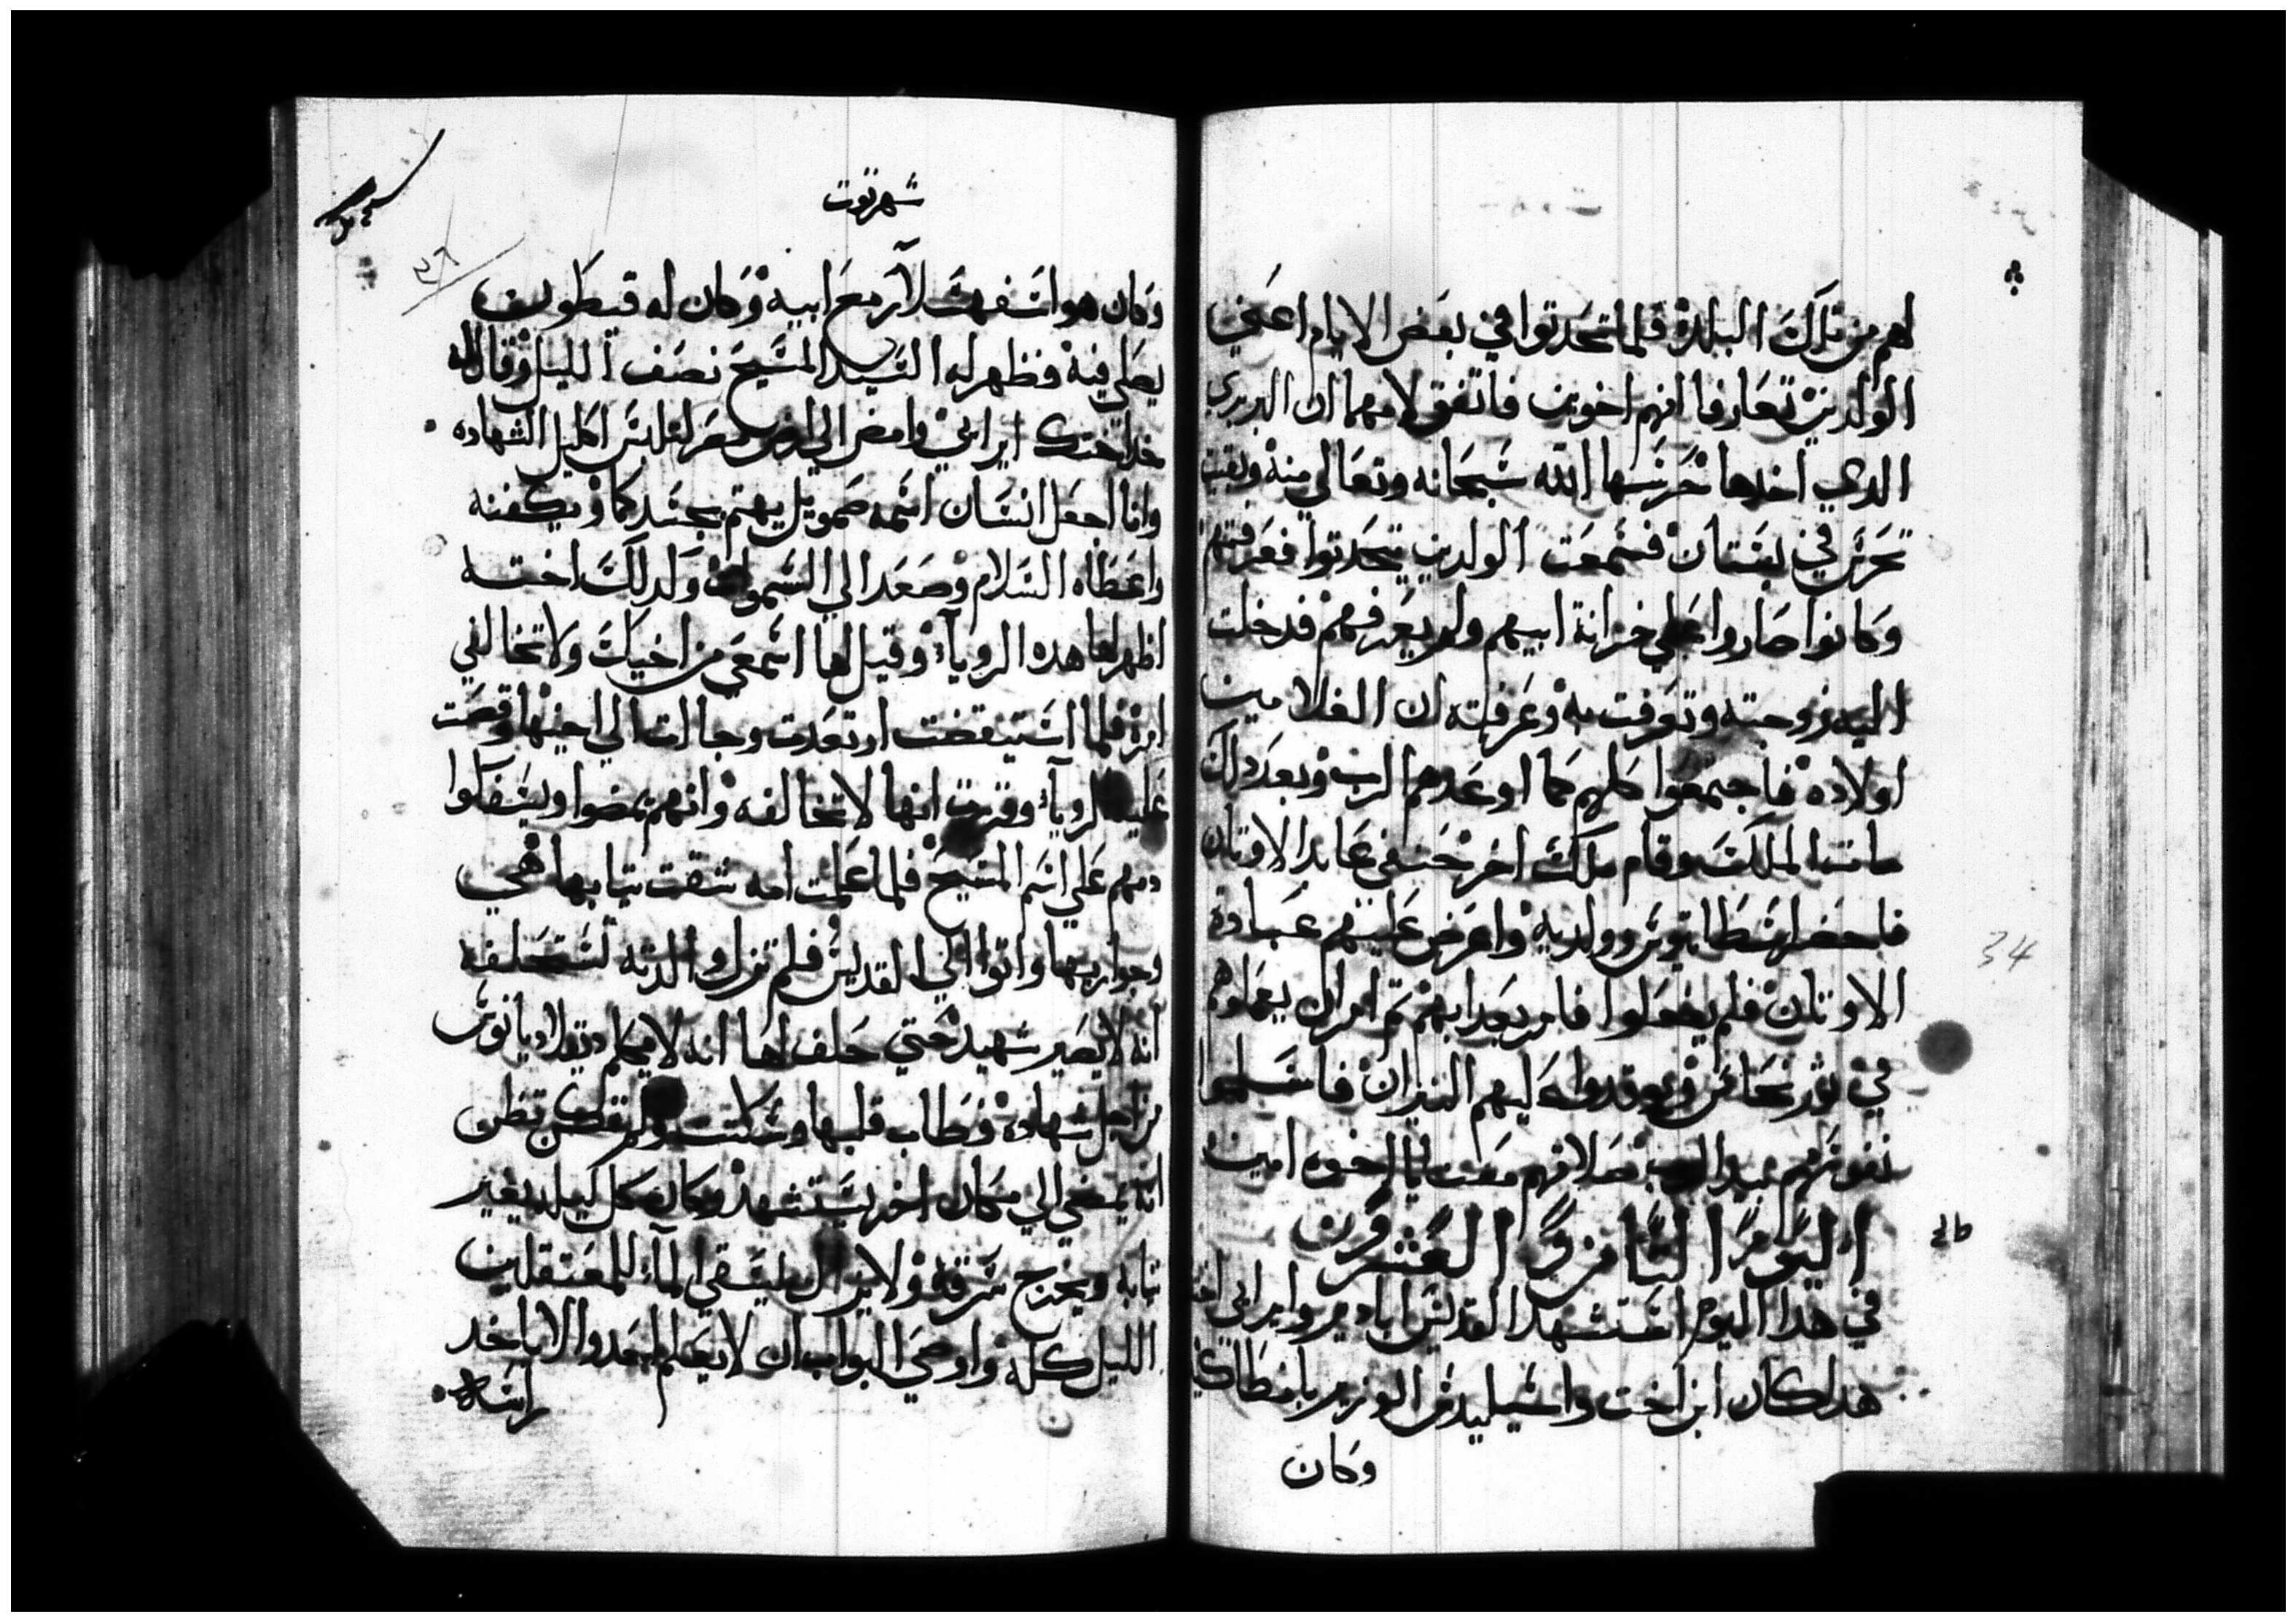 لهم من تلك البلدة فلما تحدتوا في بعض الايام اعني
الولدين تعارفا انهم اخوين فاتفق لامهما ان البربري
الدي اخدها حرسها الله سبحانه وتعالي منه وبقيت
تحرس في بستان فسمعت الولدين يتحدتوا فعرفتهم
وكانوا صاروا علي خزانة ابيهم ولم يعرفهم فدخلت
اليه زوجته وتعرفت به وعرفته ان الغلامين
اولاده فاجتمعوا كلهم كما اوعدهم الرب وبعد دلك
مات الملك وقام ملك اخر حنفي عابد الاوتان
فاحضر اسطاتيوس وولديه واعرض عليهم عبادة
الاوتان فلم يفعلوا فامر بعدابهم تم امر ان يعملوهم
في تور نحاس ويوقدوا عليهم النيران فاسلموا
نفوسهم بيد الرب صلاتهم معنا يا اخوه امين
٢٨
اليوم التامن والعشرون
في هدا اليوم استشهد القديس ابادير وايراني اخته
هدا كان ابن اخت واسيليدس الوزير بانطاكية
وكان
34
شهر توت
٣٦
وكان هو اسفهسلار مع ابيه وكان له قيطون
يصلي فيه فظهر له السيد المسيح نصف الليل وقال له
خد اختك ايراني وامض الي ارض مصر لتلبس اكليل الشهاده
وانا اجعل انسان اسمه صمويل يهتم بجسدكما ويكفنه
واعطاه السلام وصعد الي السموات ولدلك اخته
اظهر لها هده الرويا وقيل لها اسمعي من اخيك ولا تخالفي
امره فلما استيقضت ارتعدت وجاات الي اخيها وقصت
عليه الرويا وقررت انها لا تخالفه وانهم يمضوا ويسفكوا
دمهم علي اسم المسيح فلما علمت امه شقت تيابها هي
وجواريها واتوا الي القديس فلم تزل والدته تستحلفه
انه لا يصير شهيد حتي حلف لها انه لا يكلم دقلاديانوس
من اجل شهاده فطاب قلبها وسكتت ولم تكن تظن
انه يمضي الي مكان اخر يستشهد وكان كل ليله يغير
تيابه ويخرج سرقه ولا يزال يسقي الما للمعتقلين
الليل كله واوصي البواب ان لا يعلم احد والا ياخد
راسه